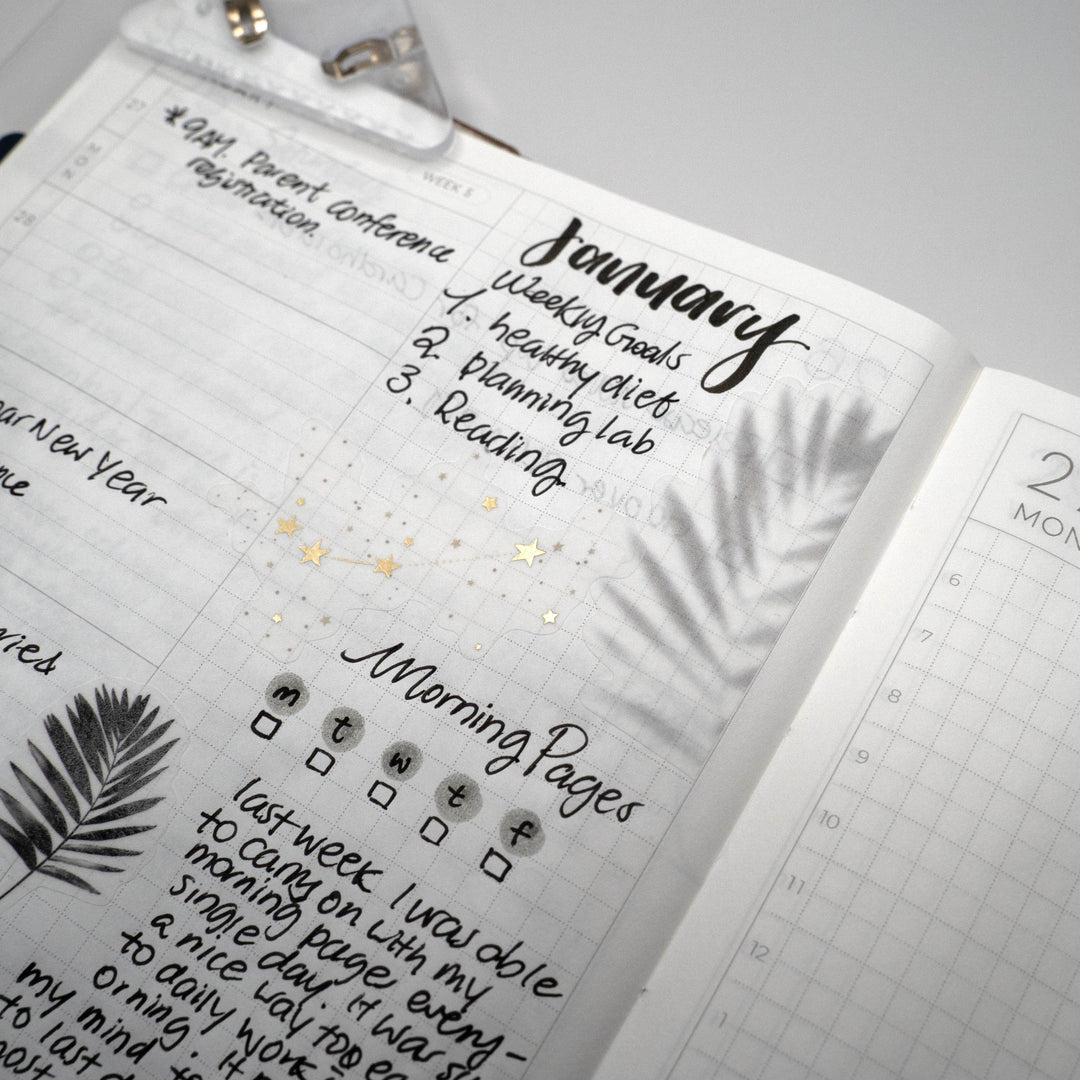 27
MON
WEEK 5
* 9AM. Parent conference
registration.
28
New Year
January
Weekly Goals
1. healthy diet
2. planning lab
3. Reading
Morning Pages
m t w t f
last week I was able
to carry on with my
morning pages every-
single day. It was
a nice way too
to daily work
my mind
to last
2
MON
6
7
8
9
10
11
12
1